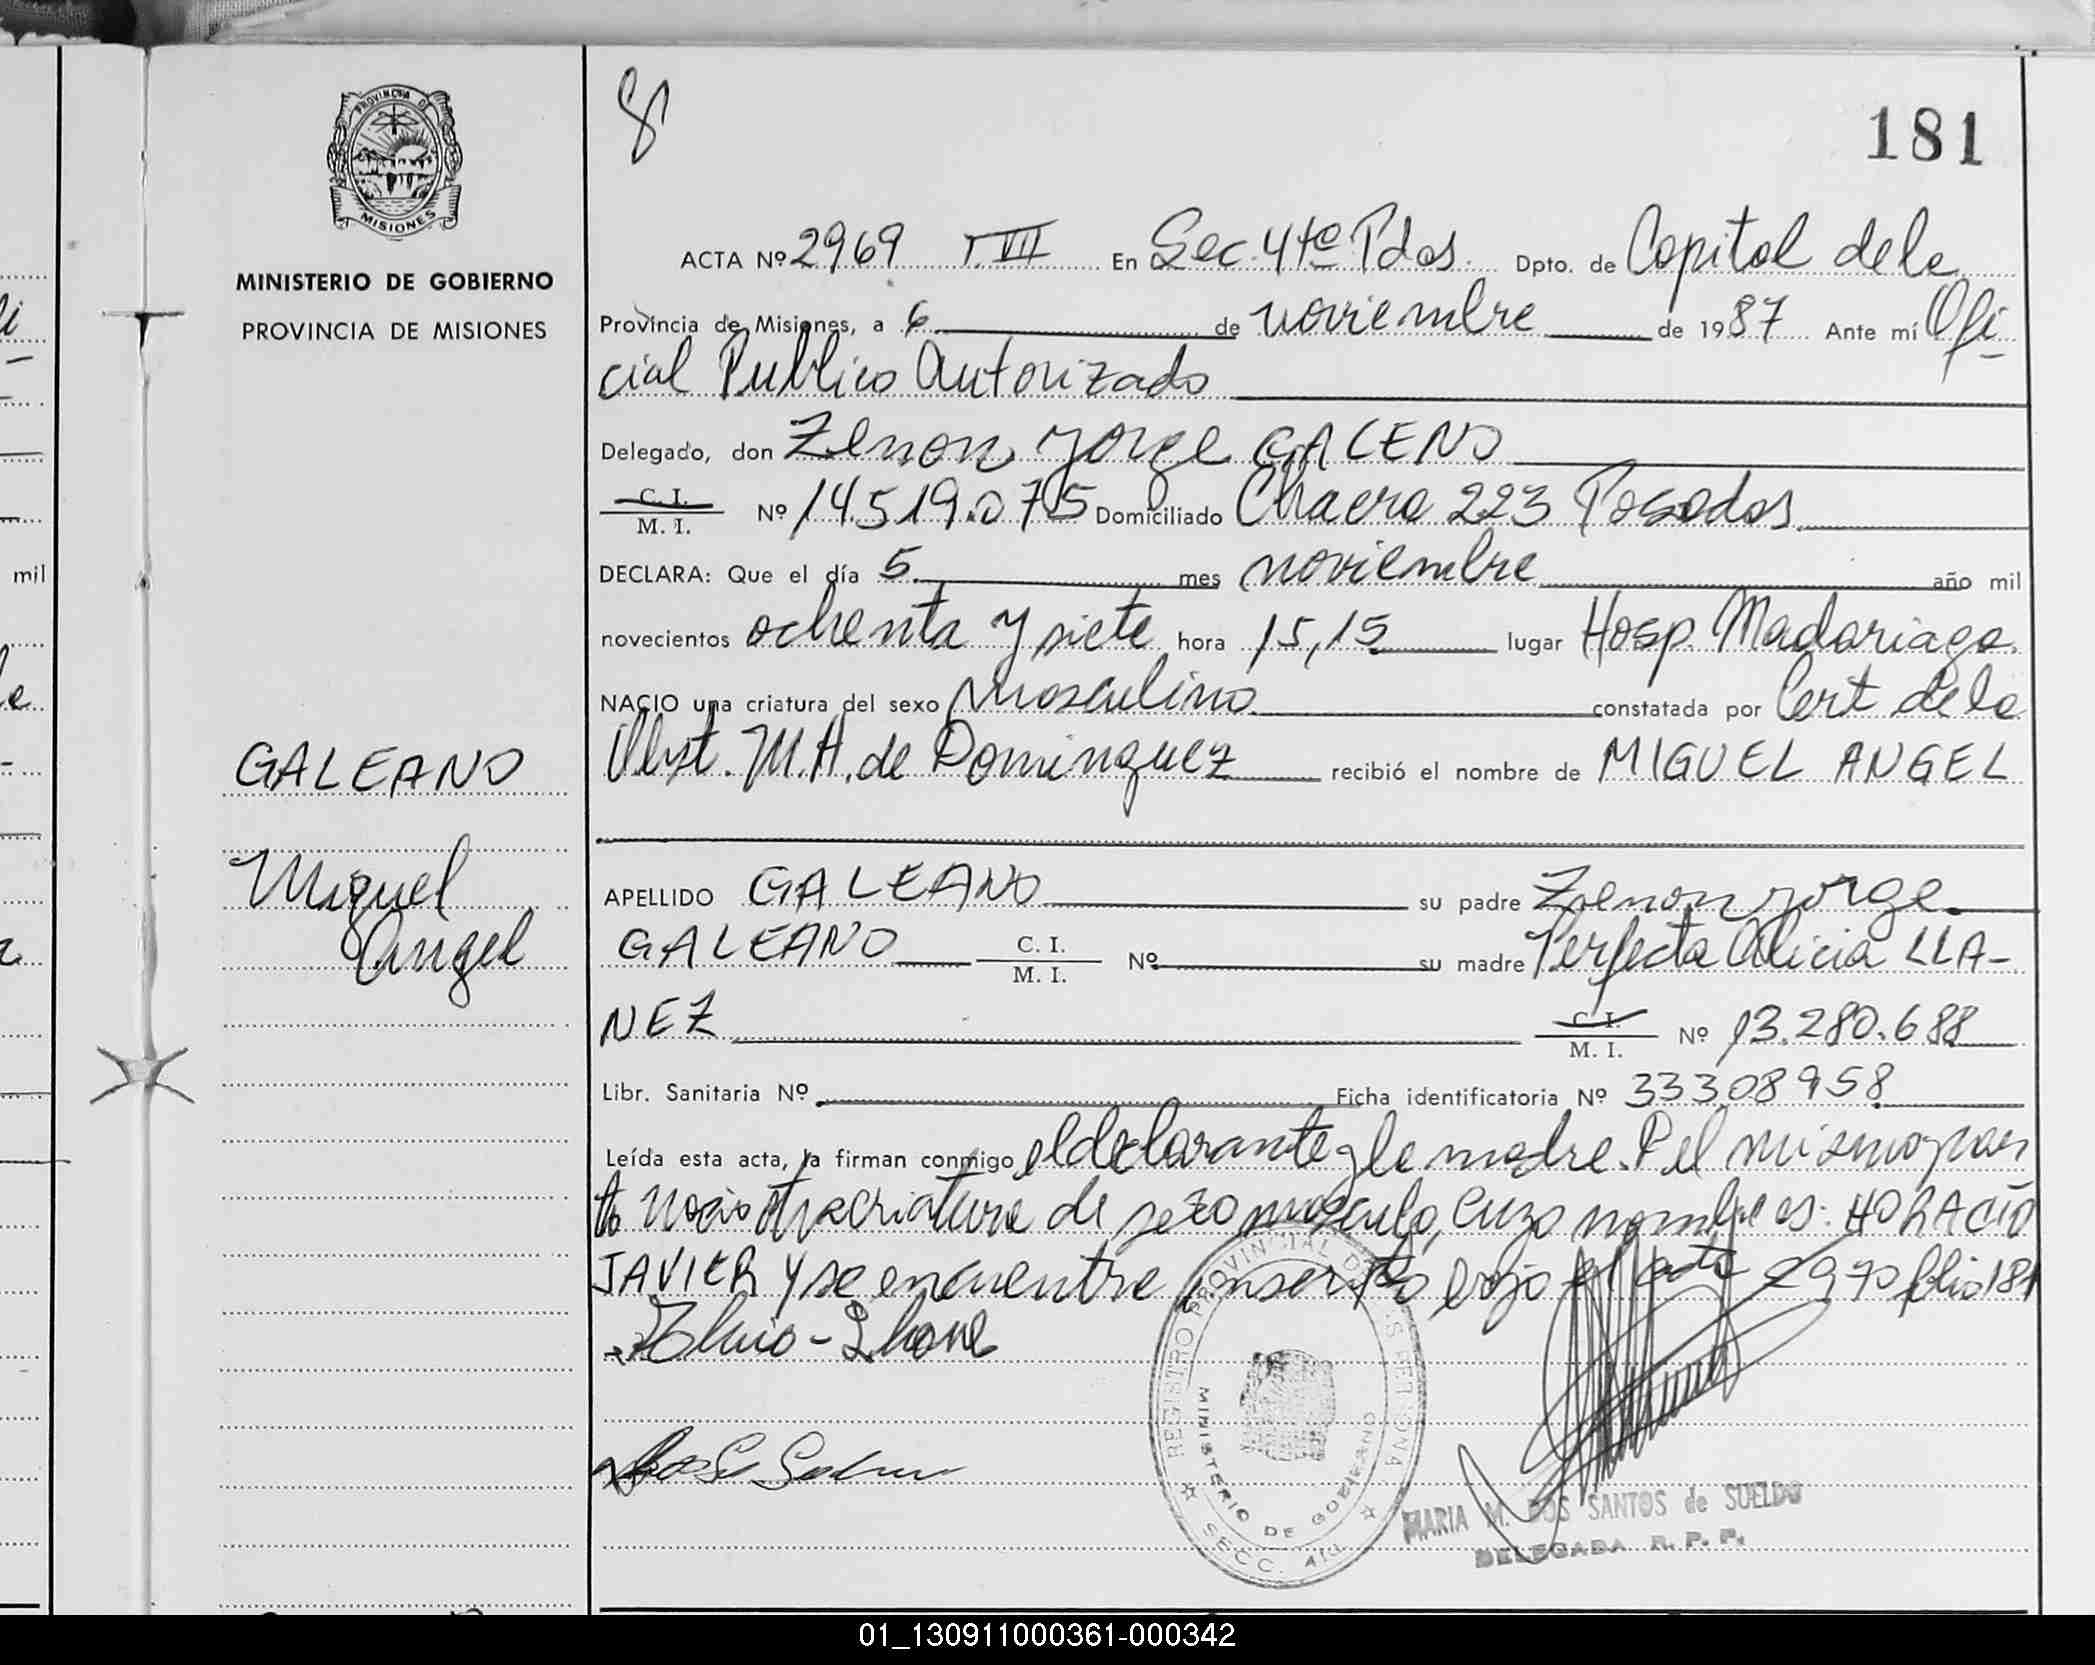 8
181
PROVINCIA DE
MISIONES
MINISTERIO DE GOBIERNO
PROVINCIA DE MISIONES
GALEANO
Miguel
Angel
ACTA Nº 2969 T. VII En Sec. 4ta Pdas. Dpto. de Capital de la
Provincia de Misiones, a 6 de noviembre de 1987 Ante mí Ofi-
cial Publico Autorizado
Delegado, don Zenon Jorge GALENO
C. I. / M. I. Nº 14.519.075 Domiciliado Chacra 223 Posadas
DECLARA: Que el día 5 mes noviembre año mil
novecientos ochenta y siete hora 15,15 lugar Hosp. Madariaga.
NACIO una criatura del sexo Masculino constatada por Cert de la
Obst. M.H. de Dominguez recibió el nombre de MIGUEL ANGEL
APELLIDO GALEANO su padre Zenon Jorge
GALEANO C. I. / M. I. Nº su madre Perfecta Alicia LLA-
NEZ C. I. / M. I. Nº 13.280.688
Libr. Sanitaria Nº Ficha identificatoria Nº 33308958
Leída esta acta, la firman conmigo el declarante y la madre. Del mismo par
to nacio otra criatura de sexo masculo, cuyo nombre es: HORACIO
JAVIER y se encuentra inserto bajo el acta 2970 folio 181
REGISTRO PROVINCIAL DE LAS PERSONAS
MINISTERIO DE GOBIERNO
SECC. 4ta.
MARIA M. DOS SANTOS de SUELDO
DELEGADA R. P. P.
mil
01_130911000361-000342